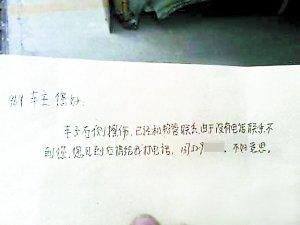 车主您好。
车子在你们擦伤,已经和招赞联系,由于没有电话联系不
到您,您见到后请给我打电话,151529 。不好意思。